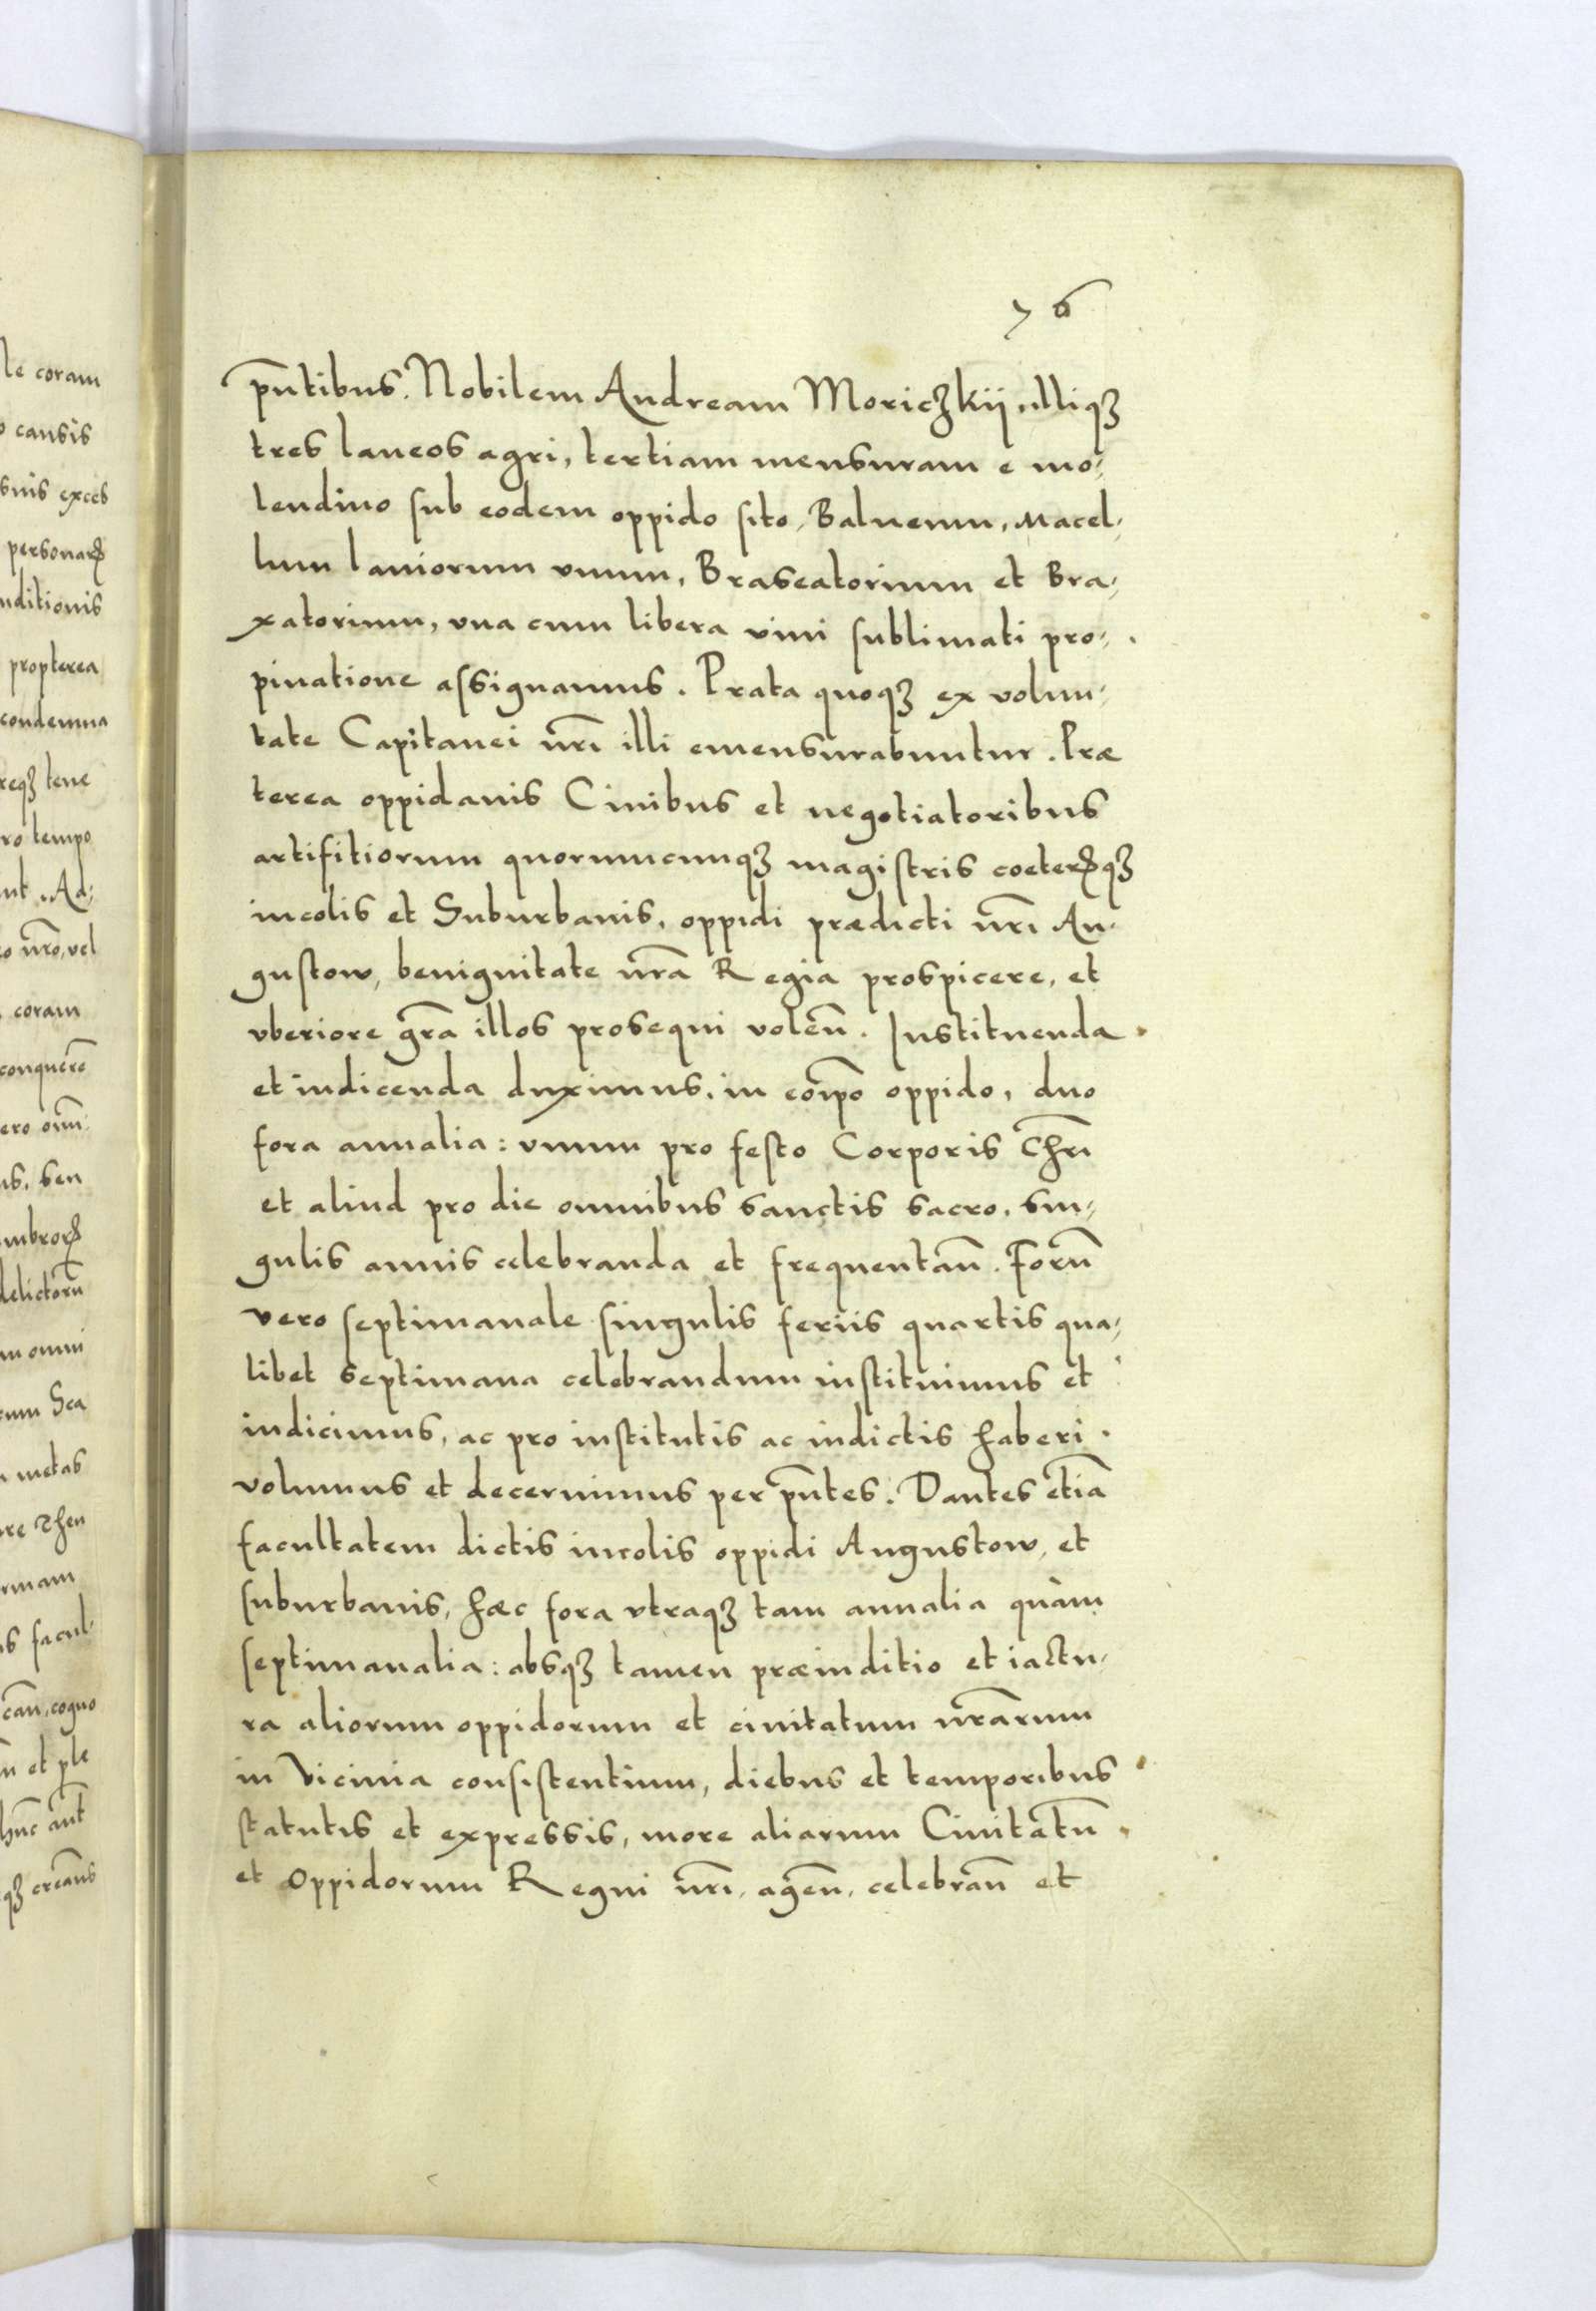 le coram
causis
suis exces
personarꝝ
nditionis
propterea
condemna
reqꝫ tene
ro tempo
nt. Ad-
o nr̃o, vel
coram
conquerē
ero om̄
us, seu
mbrorꝝ
delictorū
m omni
rum Sca
metas
re Then
rmam
is facul-
cañ, cogno
et ple
hūc añt
qꝫ creañs
76
pñtibus. Nobilem Andream Moriczkij illiqꝫ
tres laneos agri, tertiam mensuram e mo-
lendino sub eodem oppido sito, Balneum, Macel-
lum laniorum vnum, Braseatorium et Bra-
xatorium, vna cum libera vini sublimati pro-
pinatione assignamus. Prata quoqꝫ ex volun-
tate Capitanei nr̃i illi emensurabuntur. Præ
terea oppidanis Ciuibus et negotiatoribus
artifitiorum quorumcunqꝫ magistris coeterꝝqꝫ
incolis et Suburbanis, oppidi prædicti nr̃i Au-
gustow, benignitate nr̃a Regia prospicere, et
vberiore gr̃a illos prosequi voleñ. Instituenda
et indicenda duximus, in eoīpo oppido, duo
fora annalia: vnum pro festo Corporis Chr̃i
et aliud pro die omnibus sanctis sacro, sin-
gulis annis celebranda et frequentañ. Forū
vero septimanale singulis feriis quartis qua-
libet septimana celebrandum instituimus et
indicimus, ac pro institutis ac indictis haberi
volumus et decernimus per pñtes. Dantes etiā
facultatem dictis incolis oppidi Augustow, et
suburbanis, hæc fora vtraqꝫ tam annalia quàm
septimanalia: absqꝫ tamen præiuditio et iactu-
ra aliorum oppidorum et ciuitatum nr̃arum
in Vicinia consistentium, diebus et temporibus
statutis et expressis, more aliarum Ciuitatū
et Oppidorum Regni nr̃i, ageñ, celebrañ et